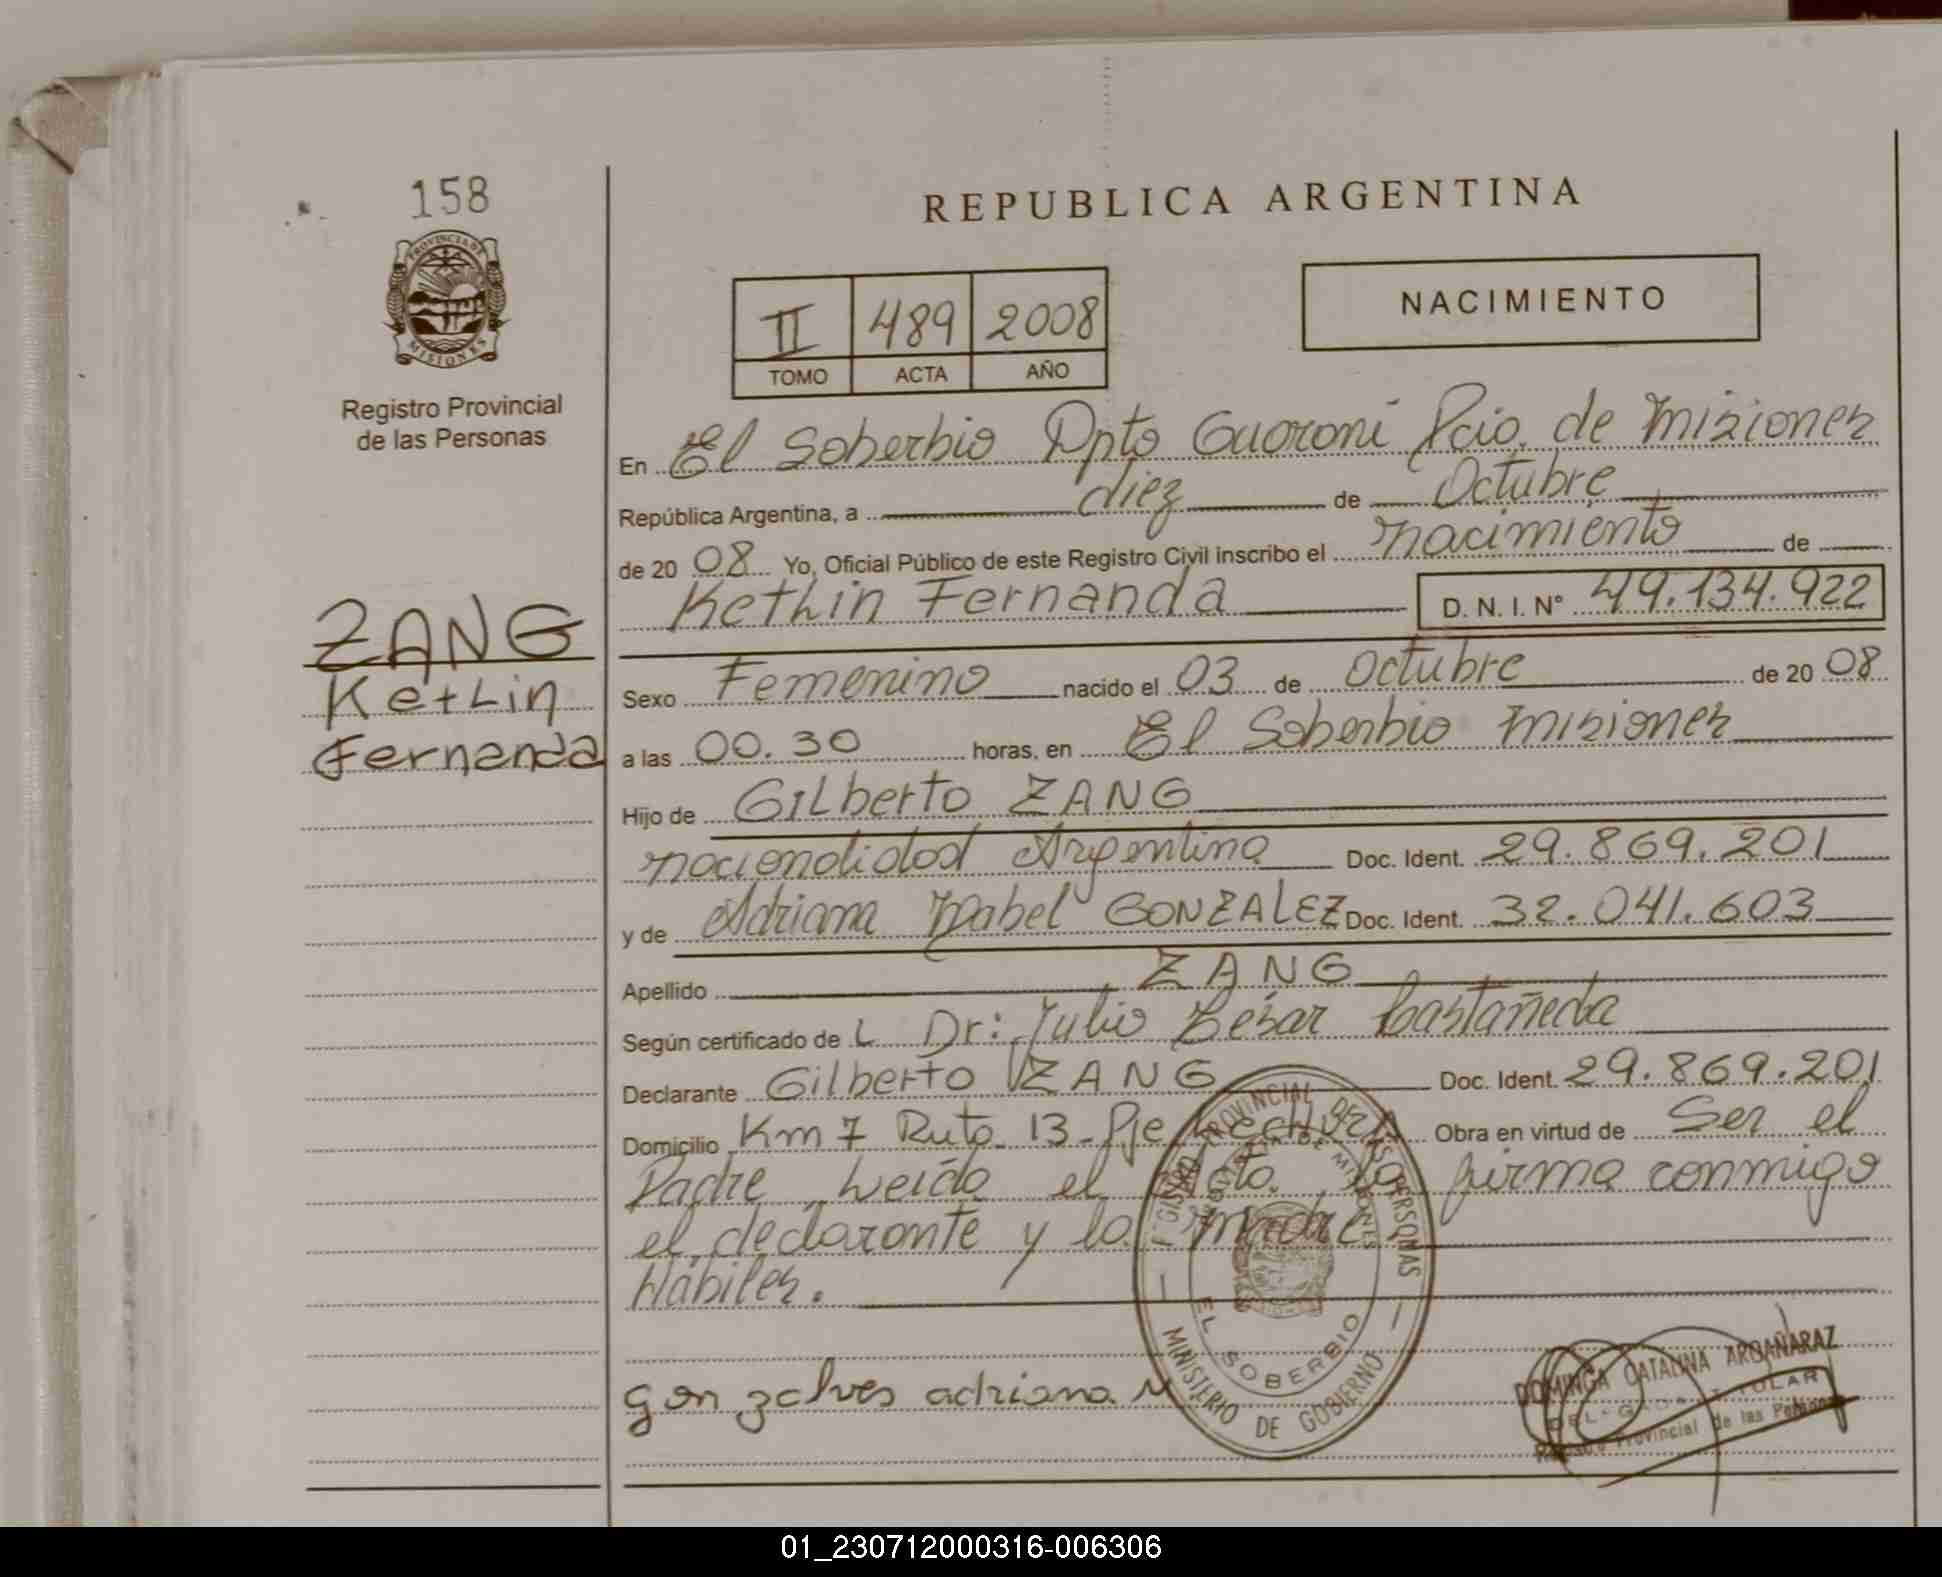 158
PROVINCIA DE
MISIONES
Registro Provincial
de las Personas
ZANG
Ketlin
Fernanda
REPUBLICA ARGENTINA
II 489 2008
TOMO ACTA AÑO
NACIMIENTO
En El Soberbio Dpto Guaraní Pcia. de Misiones
República Argentina, a diez de Octubre
de 20 08 Yo, Oficial Público de este Registro Civil inscribo el nacimiento de
Ketlin Fernanda D. N. I. Nº 49.134.922
Sexo Femenino nacido el 03 de Octubre de 20 08
a las 00.30 horas, en El Soberbio Misiones
Hijo de Gilberto ZANG
nacionalidad Argentina Doc. Ident. 29.869.201
y de Adriana Mabel GONZALEZ Doc. Ident. 32.041.603
Apellido ZANG
Según certificado de L Dr: Julio César Castañeda
Declarante Gilberto ZANG Doc. Ident. 29.869.201
Domicilio Km 7 Ruta 13 - Pje Obra en virtud de Ser el
Padre Leída el Acta la firma conmigo
el declarante y la madre
Hábiles.
REGISTRO PROVINCIAL DE LAS PERSONAS
PROVINCIA DE MISIONES
EL SOBERBIO
MINISTERIO DE GOBIERNO
gonzalves adriana M
DOMINGA CATALINA ARGAÑARAZ
DELEGADA TITULAR
Registro Provincial de las Personas
01_230712000316-006306